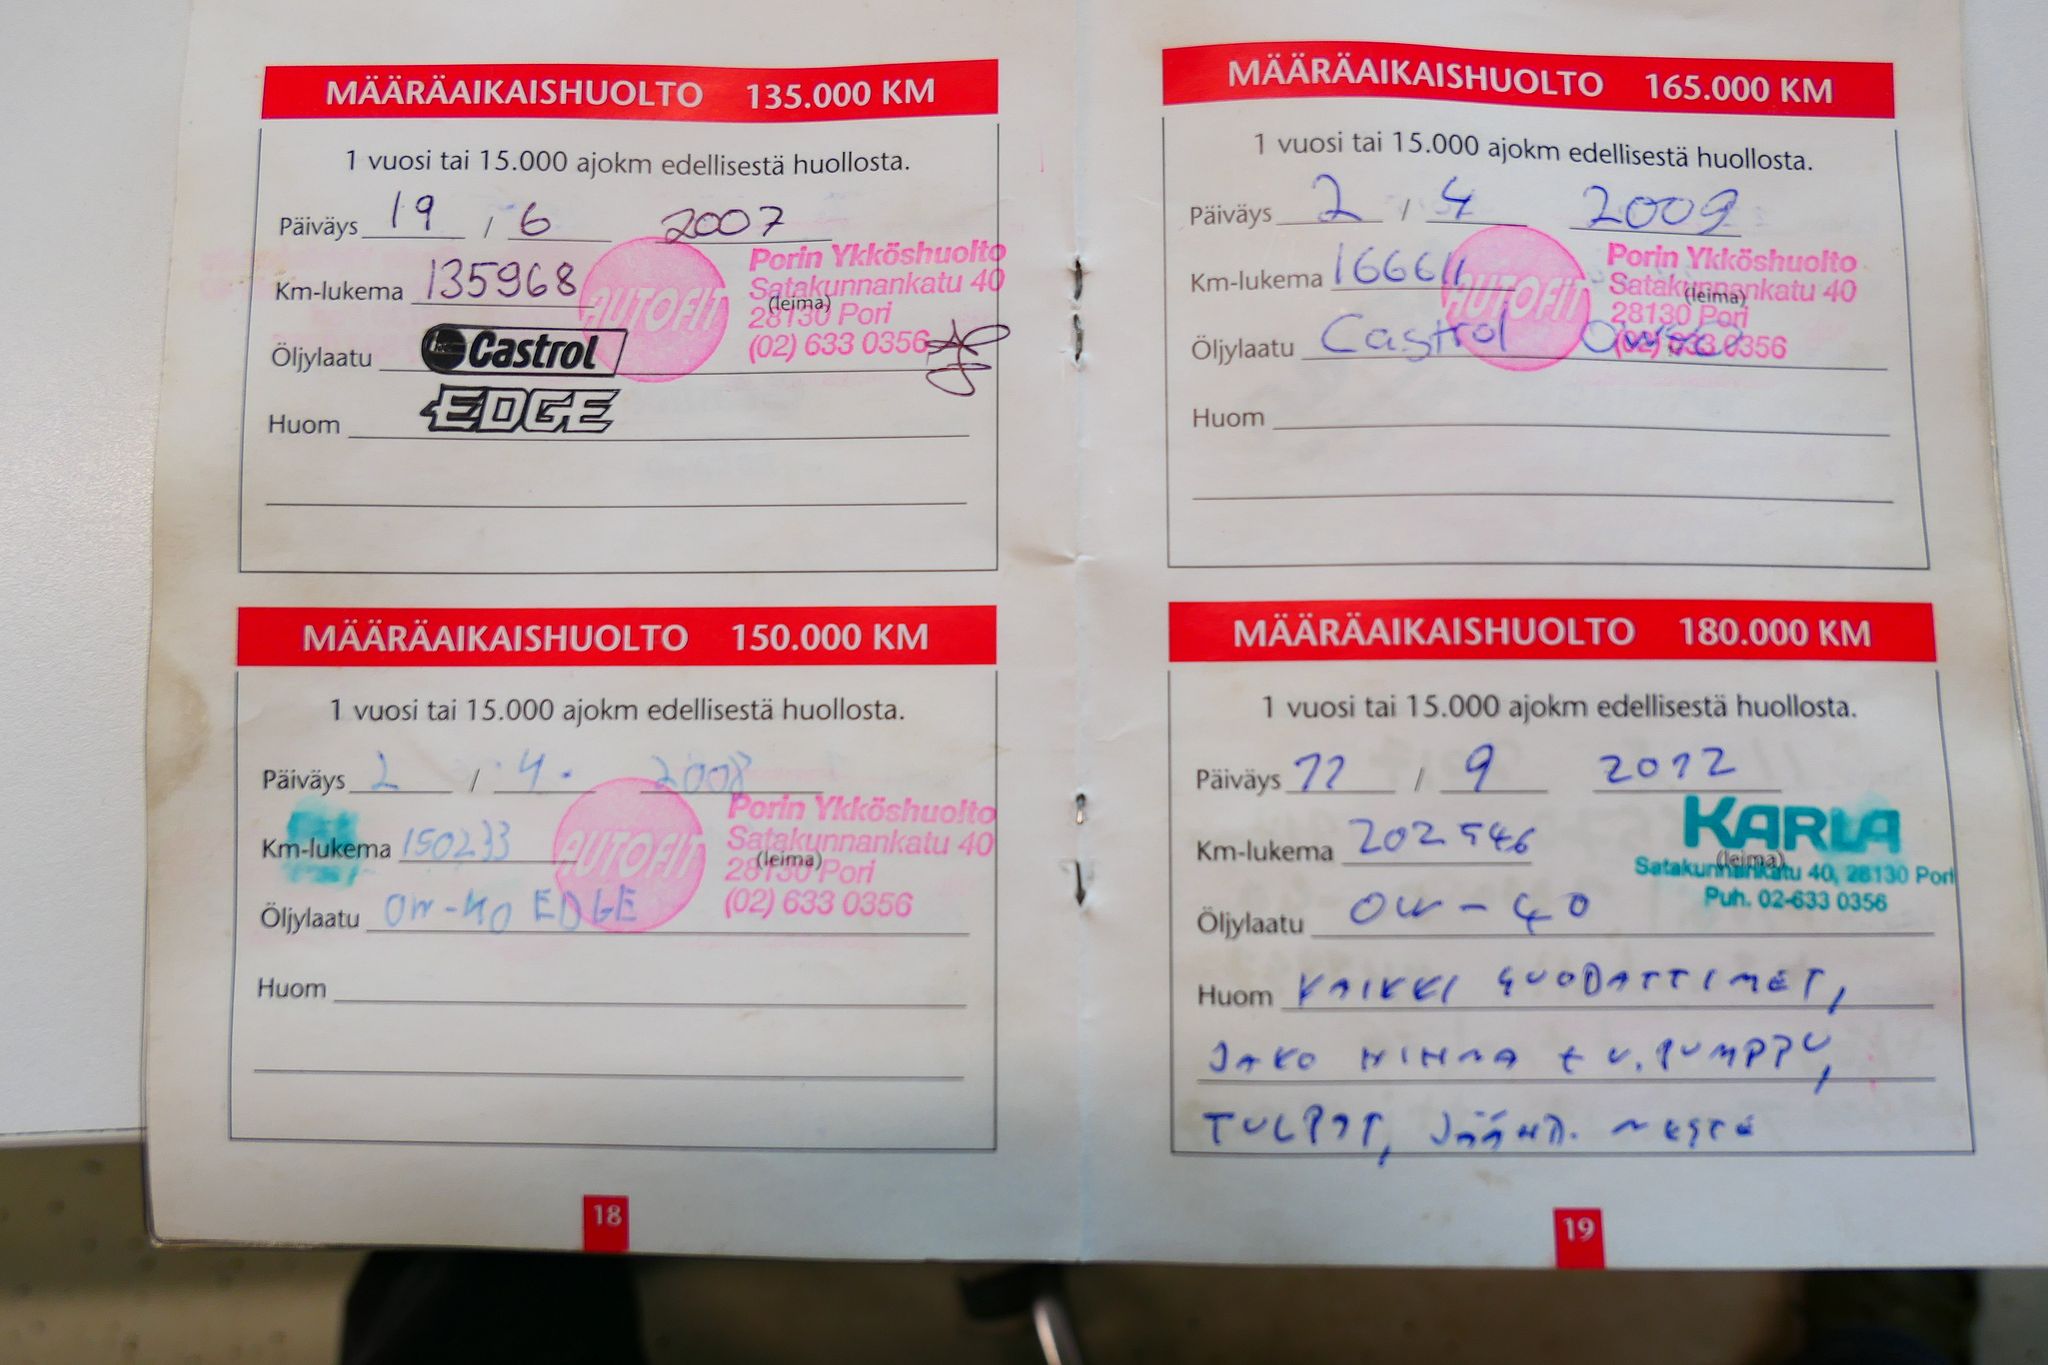 MÄÄRÄAIKAISHUOLTO 135.000 KM
1 vuosi tai 15.000 ajokm edellisestä huollosta.
Päiväys 19 / 6 2007
Km-lukema 135968
AUTOFIT
Porin Ykköshuolto
Satakunnankatu 40
(leima)
28130 Pori
(02) 633 0356
Öljylaatu Castrol
Huom EDGE
MÄÄRÄAIKAISHUOLTO 150.000 KM
1 vuosi tai 15.000 ajokm edellisestä huollosta.
Päiväys 2 / 4. 2008
Km-lukema 150233
AUTOFIT
Porin Ykköshuolto
Satakunnankatu 40
(leima)
28130 Pori
(02) 633 0356
Öljylaatu 0W-40 EDGE
Huom
18
MÄÄRÄAIKAISHUOLTO 165.000 KM
1 vuosi tai 15.000 ajokm edellisestä huollosta.
Päiväys 2 / 4 2009
Km-lukema 166611
AUTOFIT
Porin Ykköshuolto
Satakunnankatu 40
(leima)
28130 Pori
(02) 633 0356
Öljylaatu Castrol
Huom
MÄÄRÄAIKAISHUOLTO 180.000 KM
1 vuosi tai 15.000 ajokm edellisestä huollosta.
Päiväys 11 / 9 2012
Km-lukema 202546
KARLA
(leima)
Satakunnankatu 40, 28130 Pori
Puh. 02-633 0356
Öljylaatu 0W-40
Huom KAIKKI SUODATTIMET,
JAKO HIHNA + V.PUMPPU,
TULPAT, JÄÄHD. NESTE
19